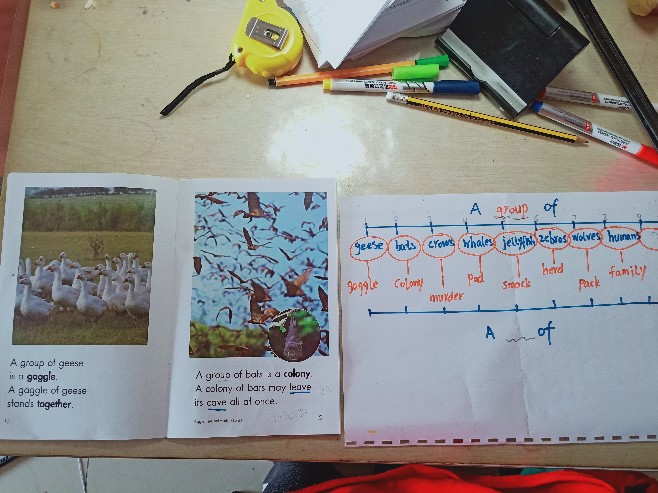 A group of geese
is a gaggle.
A gaggle of geese
stands together.
A group of bats is a colony.
A colony of bars may leave
irs cave all at once.
5
A group of
geese bats crows whales jellyfish zebras wolves humans
gaggle colony murder pod smack herd pack family
A of